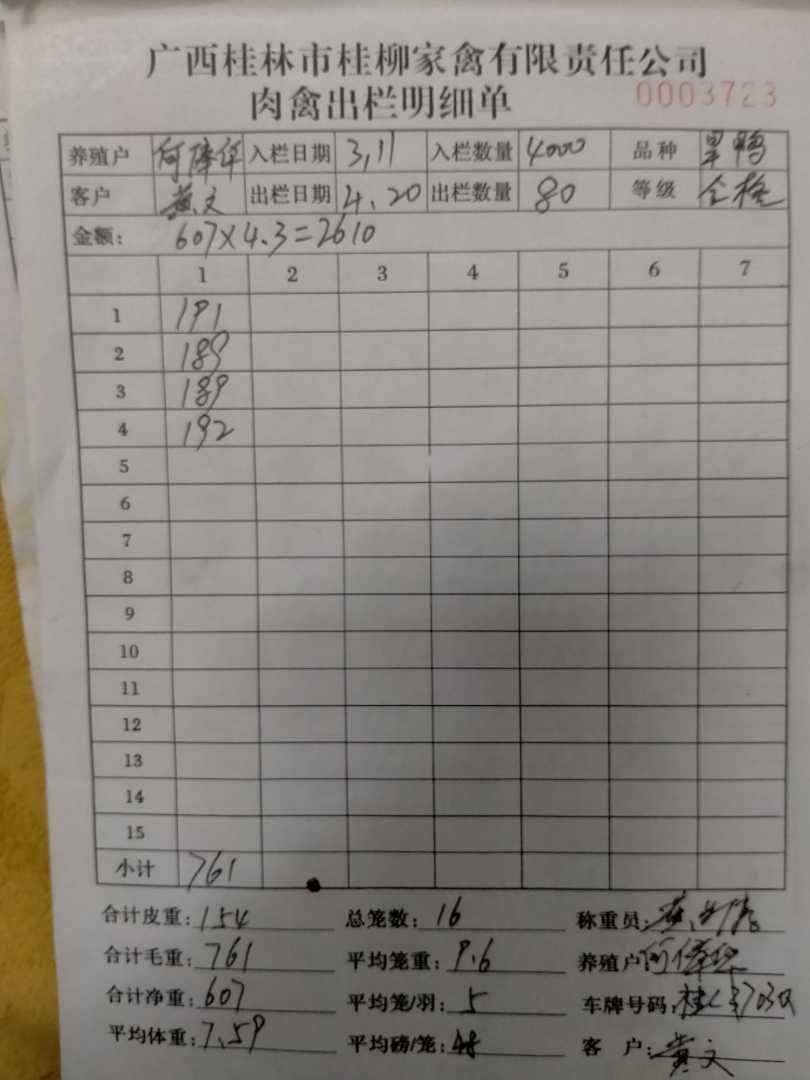 广西桂林市桂柳家禽有限责任公司
肉禽出栏明细单 0003723
养殖户 入栏日期 3,11 入栏数量 4000 品种 鸭
客户 黄文 出栏日期 4.20 出栏数量 80 等级 合格
金额: 607×4.3=2610
1 2 3 4 5 6 7
1 191
2 189
3 189
4 192
5
6
7
8
9
10
11
12
13
14
15
小计 761
合计皮重: 154 总笼数: 16 称重员:
合计毛重: 761 平均笼重: 9.6 养殖户
合计净重: 607 平均笼/羽: 5 车牌号码:
平均体重: 7.59 平均磅/笼: 客 户: 黄文